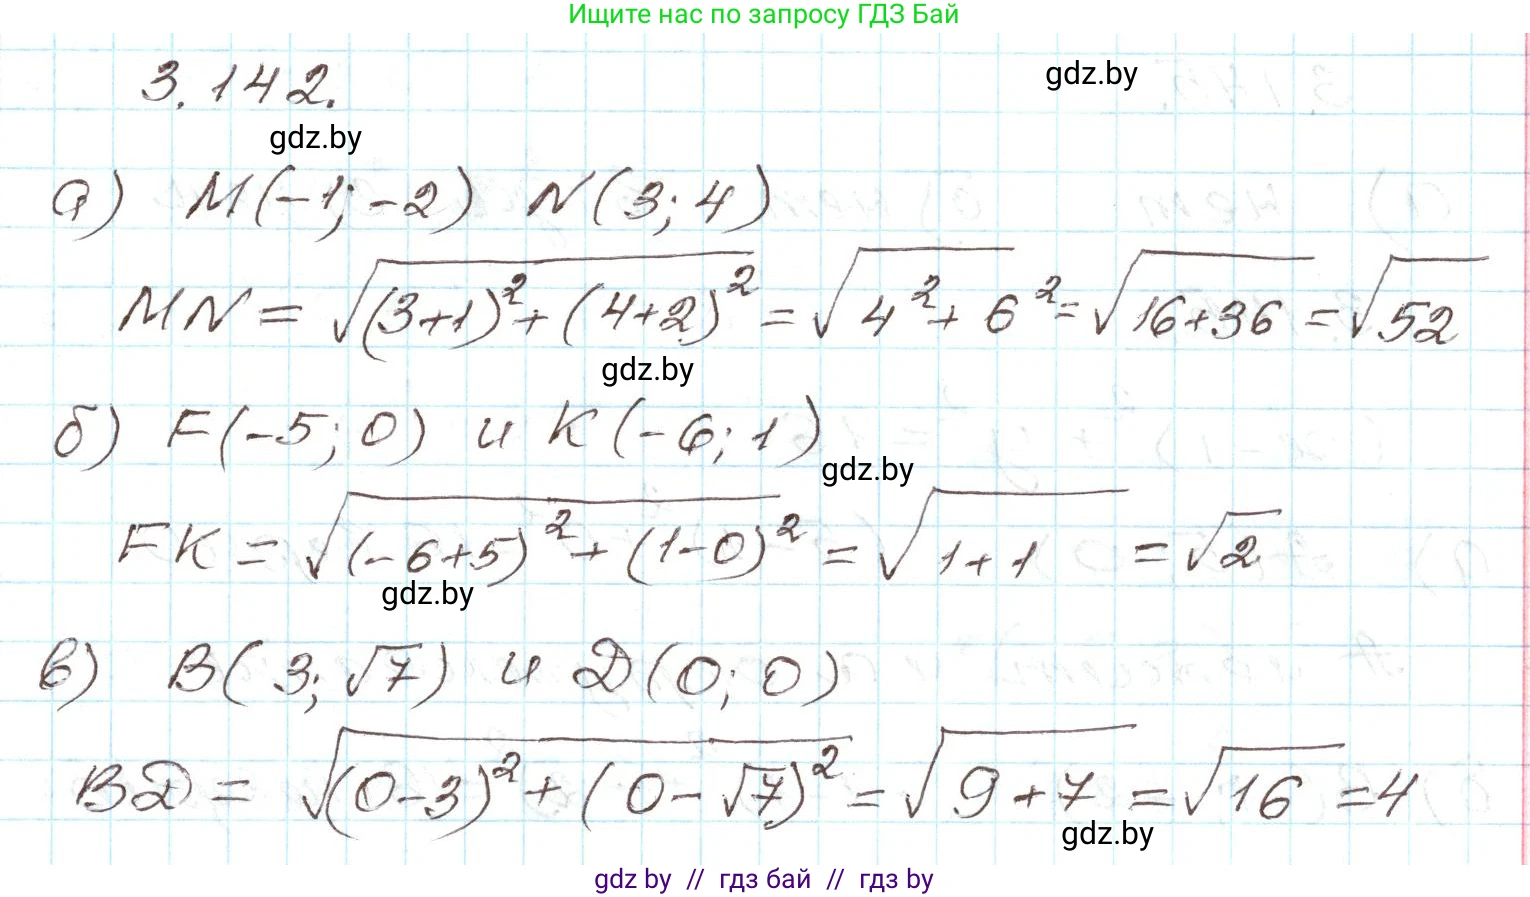 Ищите нас по запросу ГДЗ Бай
3.142.
gdz.by
gdz.by
а) M(-1; -2) N(3; 4)
MN = √((3+1)² + (4+2)²) = √(4² + 6²) = √(16+36) = √52
gdz.by
б) F(-5; 0) и K(-6; 1)
gdz.by
FK = √((-6+5)² + (1-0)²) = √(1+1) = √2
gdz.by
в) B(3; √7) и D(0; 0)
BD = √((0-3)² + (0-√7)²) = √(9+7) = √16 = 4
gdz.by
gdz by // гдз бай // гдз by